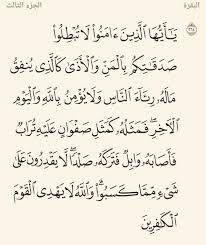 البقرة الجزء الثالث
يَٰٓأَيُّهَا ٱلَّذِينَ ءَامَنُوا۟ لَا تُبْطِلُوا۟ ٢٦٤
صَدَقَٰتِكُم بِٱلْمَنِّ وَٱلْأَذَىٰ كَٱلَّذِى يُنفِقُ
مَالَهُۥ رِئَآءَ ٱلنَّاسِ وَلَا يُؤْمِنُ بِٱللَّهِ وَٱلْيَوْمِ
ٱلْءَاخِرِ ۖ فَمَثَلُهُۥ كَمَثَلِ صَفْوَانٍ عَلَيْهِ تُرَابٌ
فَأَصَابَهُۥ وَابِلٌ فَتَرَكَهُۥ صَلْدًا ۖ لَّا يَقْدِرُونَ عَلَىٰ
شَىْءٍ مِّمَّا كَسَبُوا۟ ۗ وَٱللَّهُ لَا يَهْدِى ٱلْقَوْمَ
ٱلْكَٰفِرِينَ